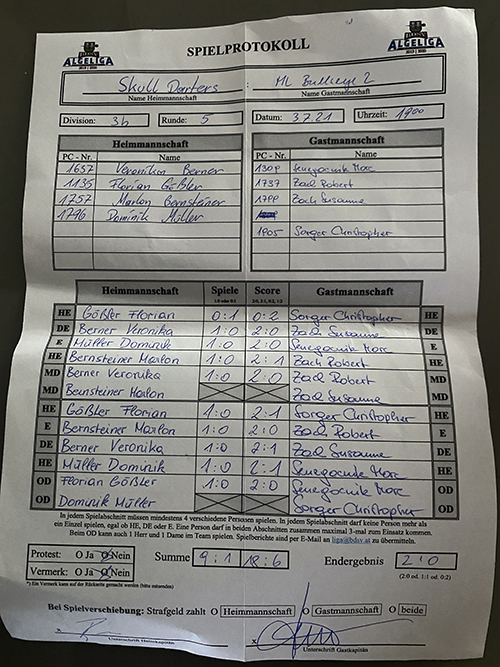 ALGELIGA
SPIELPROTOKOLL
ALGELIGA
Skull Darters : ML Bullseye 2
Name Heimmannschaft Name Gastmannschaft
Division: 3b Runde: 5 Datum: 3.7.21 Uhrzeit: 1900
Heimmannschaft Gastmannschaft
PC - Nr. Name PC - Nr. Name
1657 Veronika Berner 1309 Senegacnik Marc
1135 Florian Gößler 1737 Zach Robert
1757 Marlon Bernsteiner 1799 Zach Susanne
1796 Dominik Müller
1905 Sorger Christopher
Heimmannschaft Spiele Score Gastmannschaft
1:0 oder 0:1 2:0, 2:1, 0:2, 1:2
HE Gößler Florian 0:1 0:2 Sorger Christopher HE
DE Berner Veronika 1:0 2:0 Zach Susanne DE
E Müller Dominik 1:0 2:0 Senegacnik Marc E
HE Bernsteiner Marlon 1:0 2:1 Zach Robert HE
MD Berner Veronika 1:0 2:0 Zach Robert MD
MD Bernsteiner Marlon Zach Susanne MD
HE Gößler Florian 1:0 2:1 Sorger Christopher HE
E Bernsteiner Marlon 1:0 2:0 Zach Robert E
DE Berner Veronika 1:0 2:1 Zach Susanne DE
HE Müller Dominik 1:0 2:1 Senegacnik Marc HE
OD Florian Gößler 1:0 2:0 Senegacnik Marc OD
OD Dominik Müller Sorger Christopher OD
In jedem Spielabschnitt müssen mindestens 4 verschiedene Personen spielen. In jedem Spielabschnitt darf keine Person mehr als
ein Einzel spielen, egal ob HE, DE oder E. Eine Person darf in beiden Abschnitten zusammen maximal 3-mal zum Einsatz kommen.
Beim OD kann auch 1 Herr und 1 Dame im Team spielen. Spielberichte sind per E-Mail an liga@bdsv.at zu übermitteln.
Protest: O Ja O Nein Summe 9:1 18:6 Endergebnis 2:0
Vermerk: O Ja O Nein (2:0 od. 1:1 od. 0:2)
*) Ein Vermerk kann auf der Rückseite gemacht werden (bitte mitsenden)
Bei Spielverschiebung: Strafgeld zahlt O Heimmannschaft O Gastmannschaft O beide
x x
Unterschrift Heimkapitän Unterschrift Gastkapitän